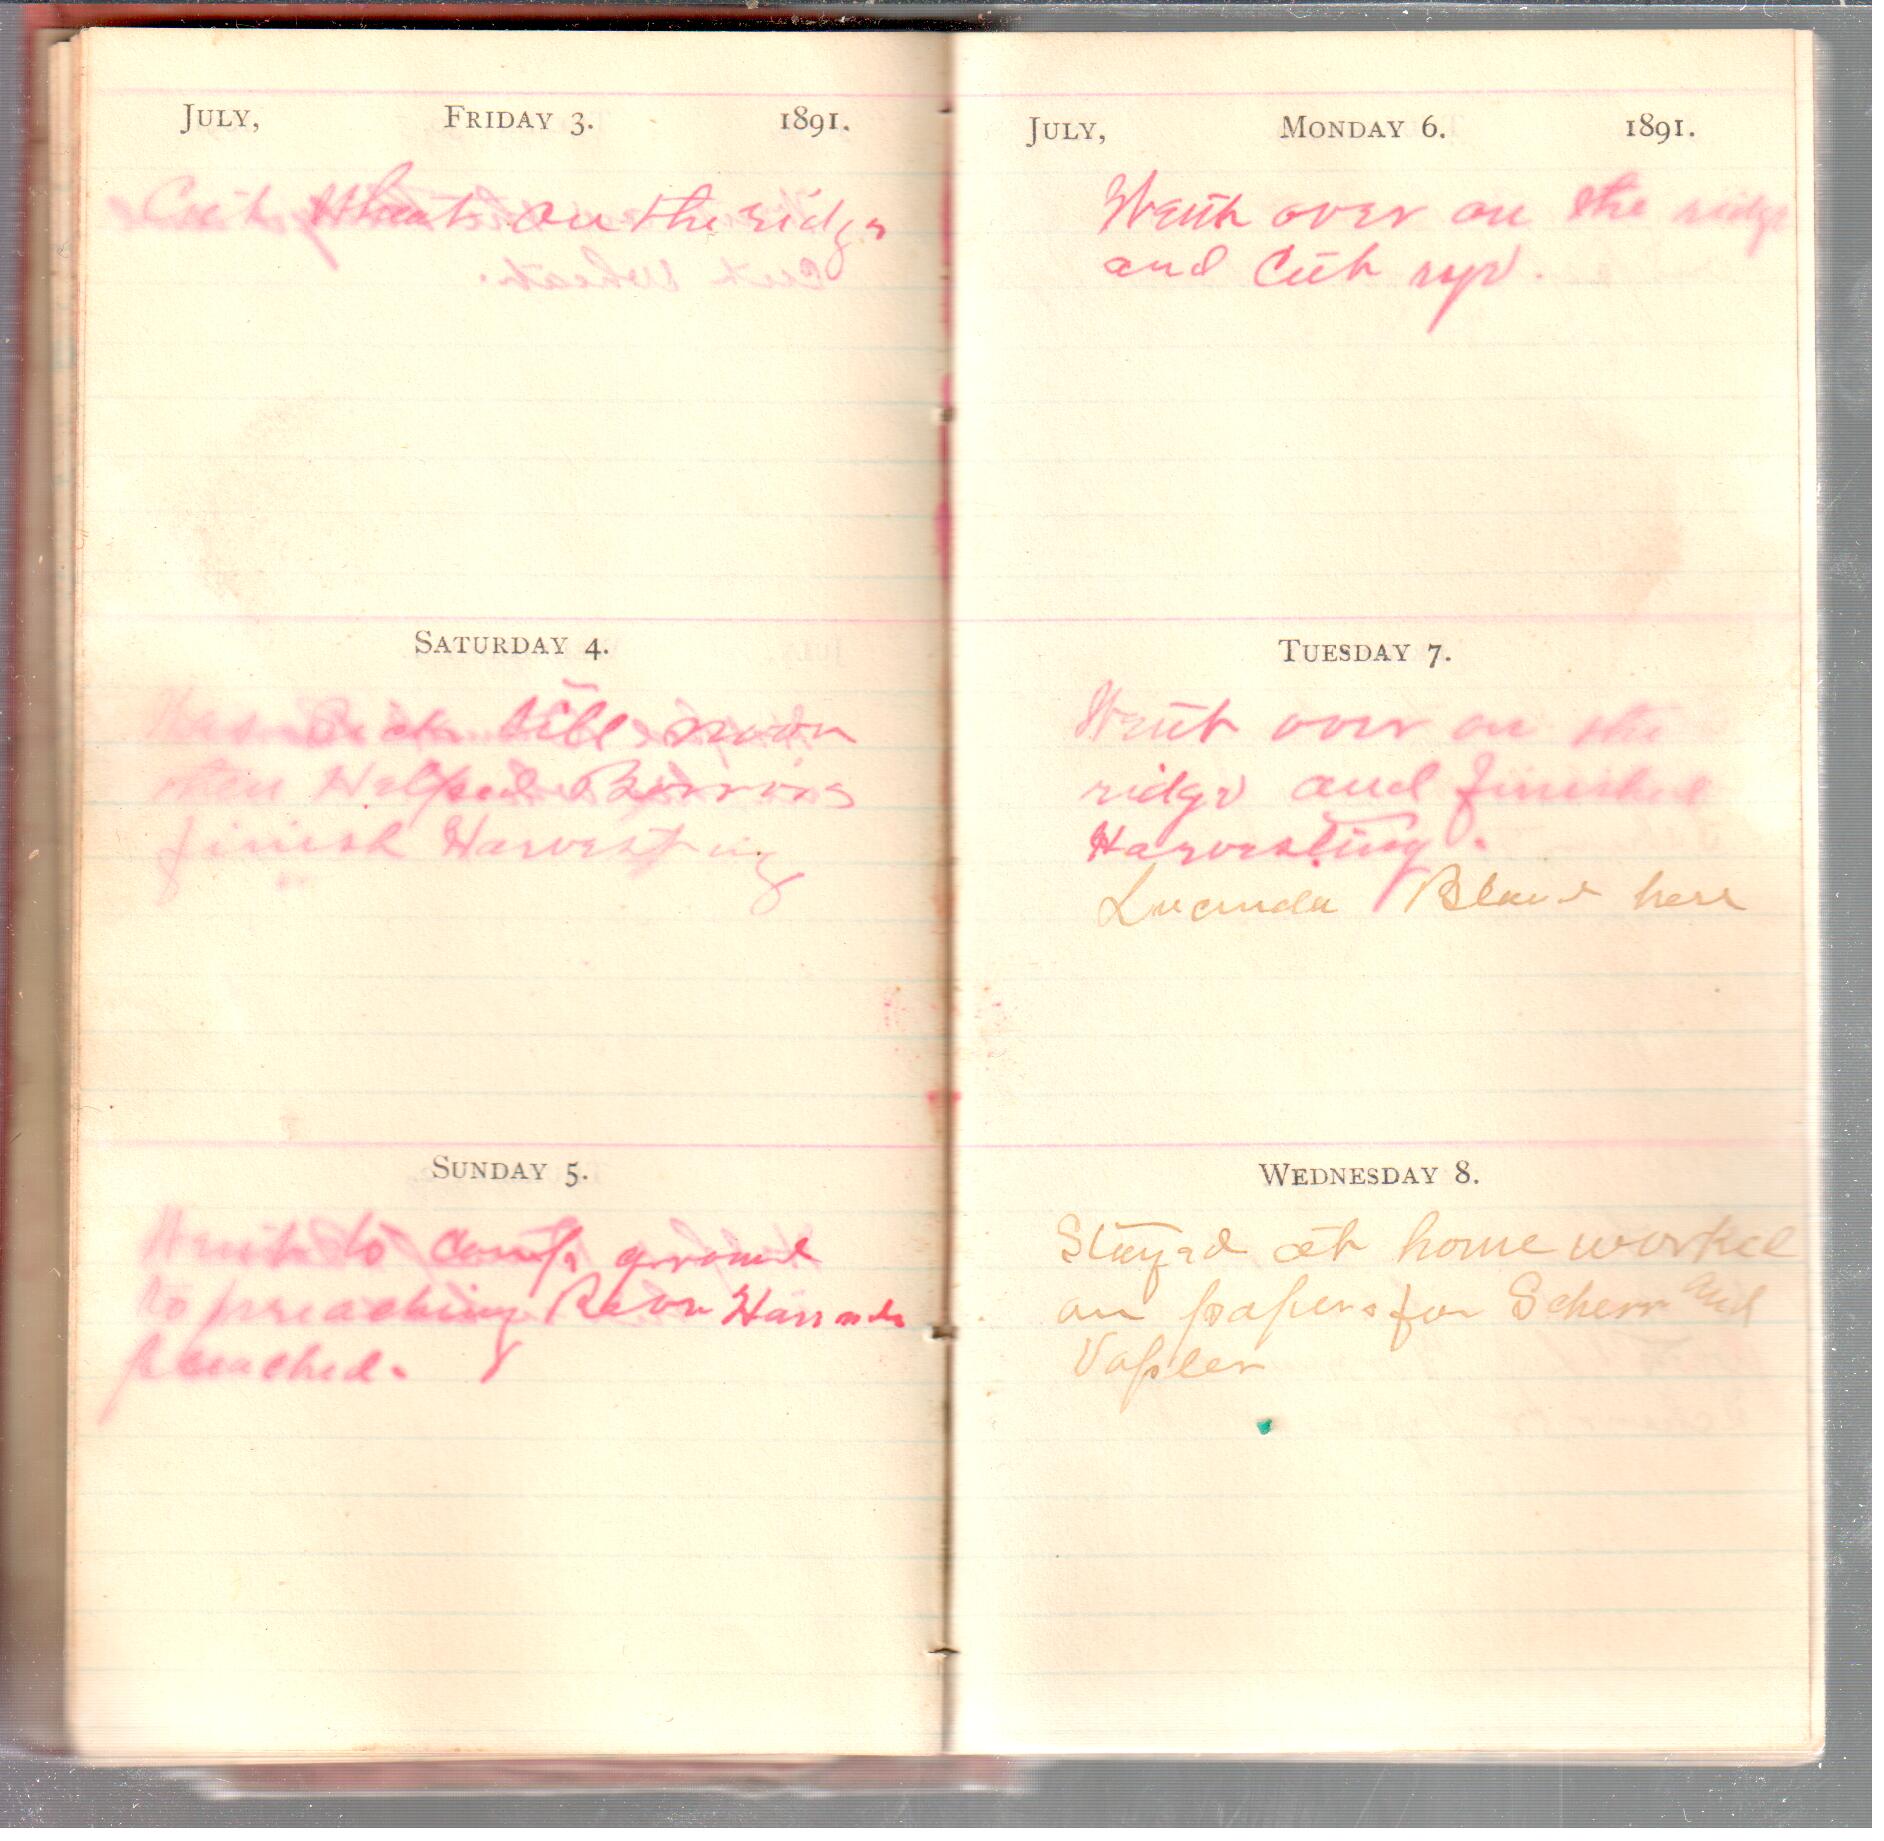 JULY, FRIDAY 3. 1891.
Cut Wheat on the ridge
SATURDAY 4.
Was Sick till noon
then Helped
finish Harvesting
SUNDAY 5.
Went to Camp ground
to preaching
preached.
JULY, MONDAY 6. 1891.
Went over on the ridge
and Cut rye.
TUESDAY 7.
Went over on the
ridge and finished
Harvesting.
Lucinda Bland here
WEDNESDAY 8.
Stayed at home worked
on papers for Scherr and